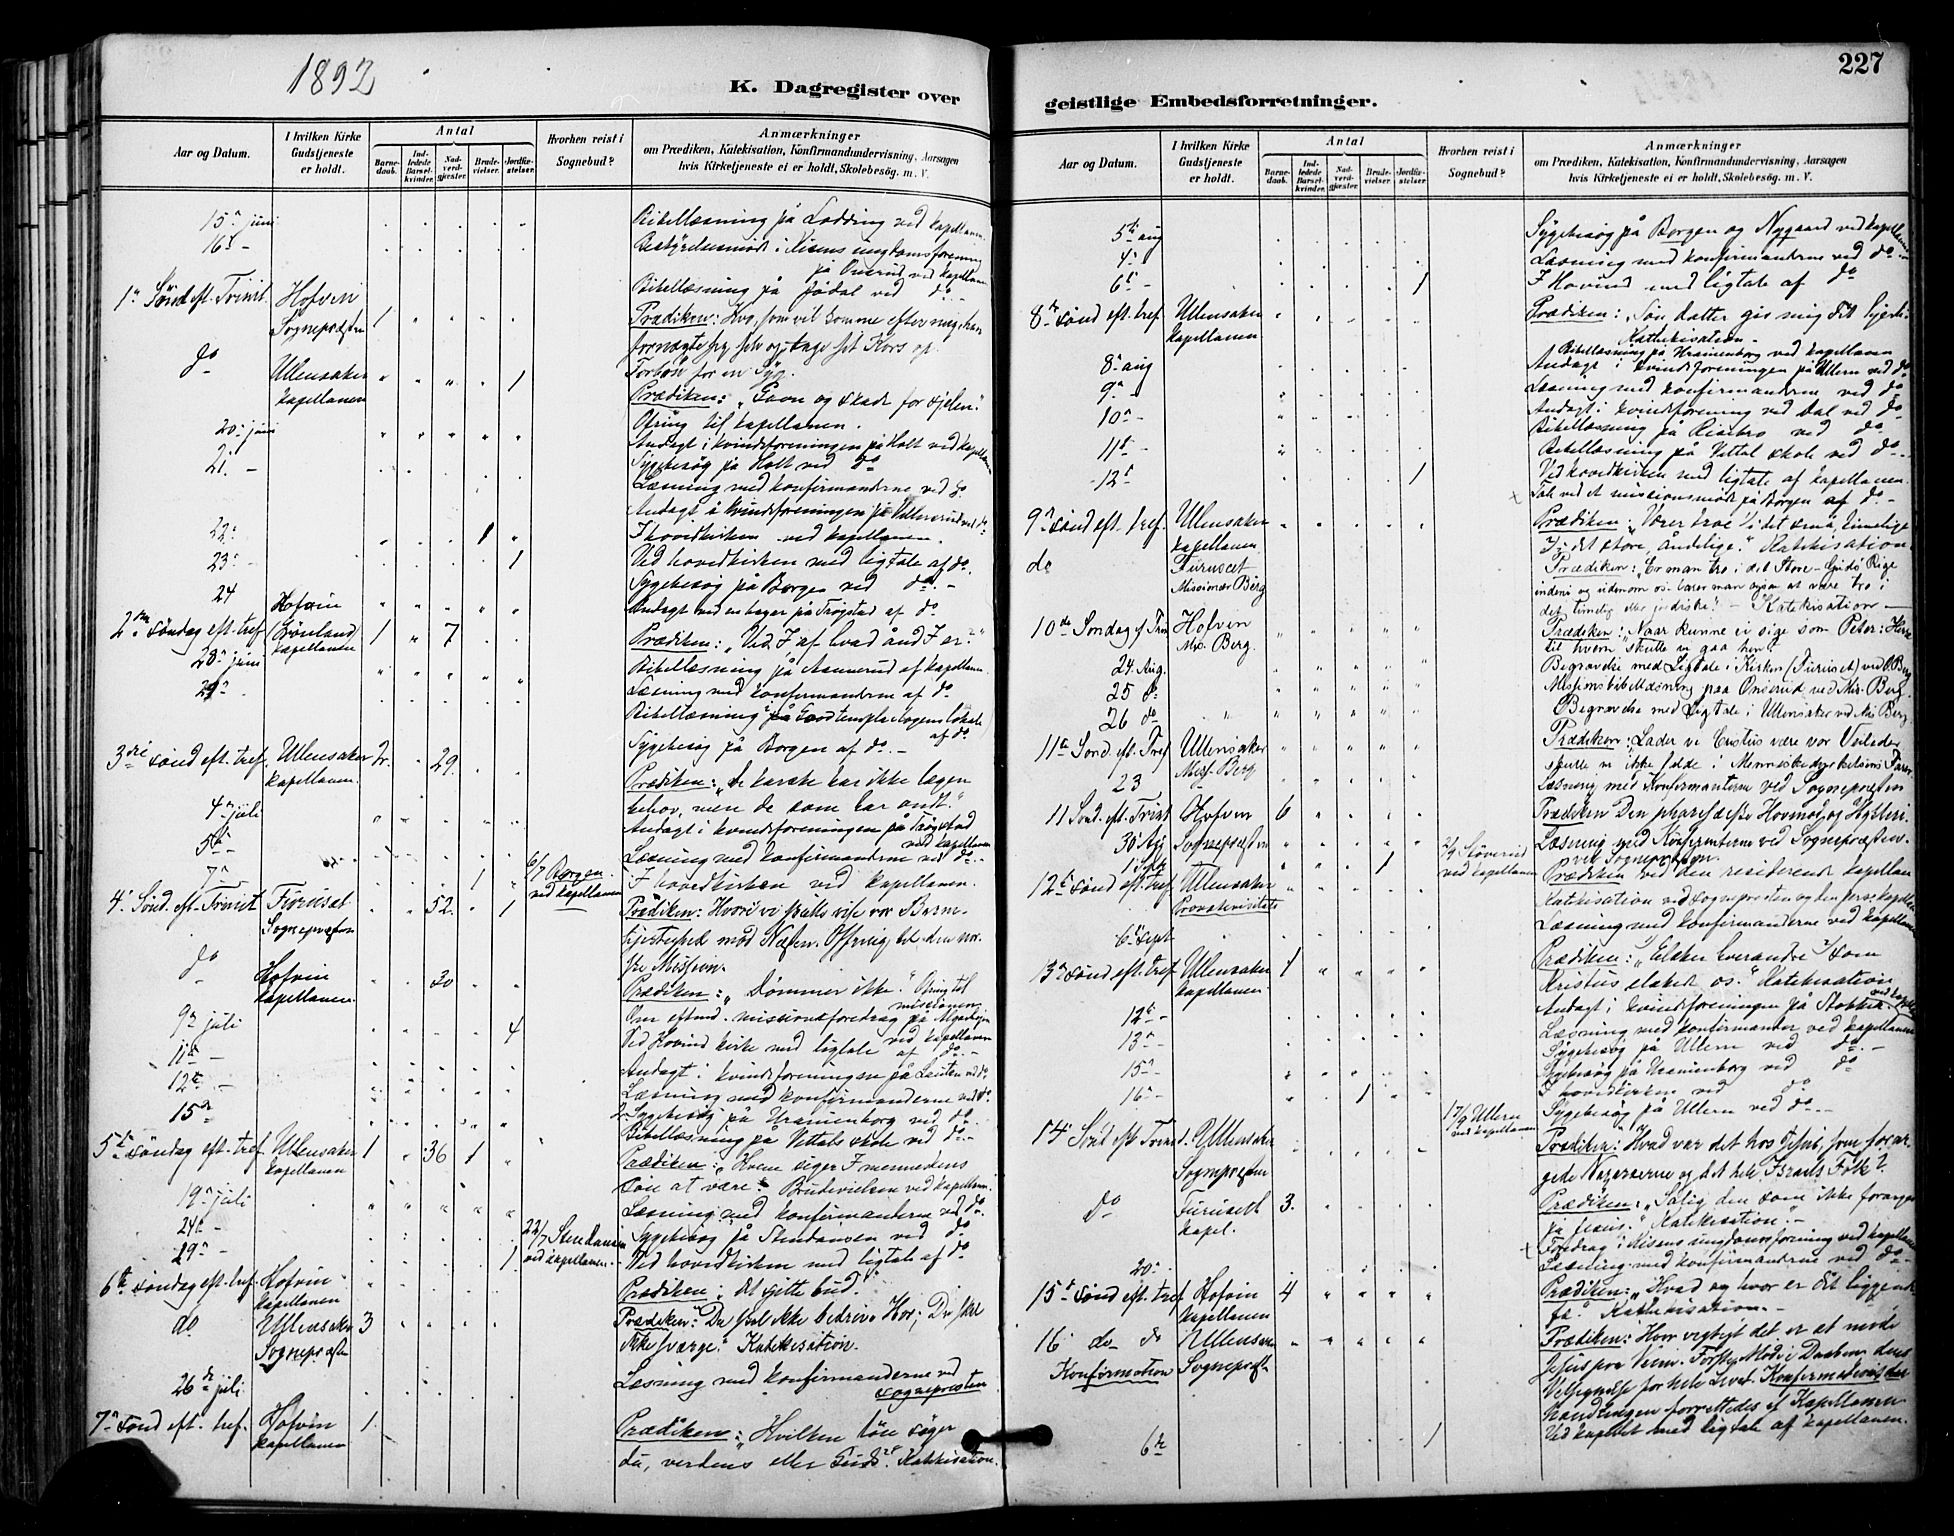 1892
K. Dagregister over
Aar og Datum.
I hvilken Kirke Gudstjeneste er holdt.
Antal
Barnedaab.
Indledede Barselkvinder.
Nadverdgjester.
Brudevielser.
Jordfæstelser.
Hvorhen reist i Sognebud?
Anmærkninger
om Prædiken, Katekisation, Konfirmandundervisning, Aarsagen
hvis Kirketjeneste ei er holdt, Skolebesøg. m. V.
15 juni Bibellæsning på Lodding ved kapellanen.
16 - Bestyrelsesmøde i Risens ungdomsforening
på Onsrud ved kapellanen
Bibellæsning på Jødal ved do -
1ste Sönd eft. Trinit. Hofvin Sognepræsten 1 Prædiken: Hvo, som vil komme efter mig, han
fornægte sig selv og tage sit Kors op.
Forbøn for en Syg.
do Ullensaker kapellanen 1 Prædiken: "Gavn og skade for sjelen."
Ofring til kapellanen.
20 juni Andagt i kvindeforeningen på Holt ved kapellanen
Sygebesøg på Holt ved do
21 - Læsning med konfirmanderne ved do.
Andagt i kvindeforeningen på ved do
22 1 I hovedkirken ved kapellanen.
23 - 1 Ved hovedkirken med ligtale af do.
Sygebesøg på Borgen ved do. -
24 Andagt ved en bager på Trøgstad af do
2den söndag eft. tref. Hofvin (Grönland) kapellanen 1 7 Prædiken: "Ved I af hvad ånd I er?"
28 juni Bibellæsning på Aamerud af kapellanen
29 Læsning med konfirmanderne af do
Bibellæsning på Goodtemplarlogens lokale
af do
Sygebesøg på Borgen af do. -
3die sönd eft. tref. Ullensaker kapellanen 2 29. Prædiken: "De karske har ikke lægen
behov, men de som har ondt."
4 juli Andagt i kvindeforeningen på Trøgstad
ved kapellanen
5 - Læsning med konfirmanderne ved do. -
7 1 6/7 Borgen ved kapellanen I hovedkirken ved kapellanen.
4 Sönd. eft. Trinit. Furuset Sognepræsten 52. 1 Prædiken: Hvori vi skulle vise vor Barm-
hjertighed mod Næsten. Offring til den nor-
ske Mission.
do Hofvin kapellanen. 30 Prædiken: "Dømmer ikke." Ofring til
missionen
Om eftmd. missionsforedrag på
ved kapellanen
9 juli 4 Ved Hovind kirke med ligtale af do. -
11 - Andagt i kvindeforeningen på ved do.
12 - Læsning med konfirmanderne ved do.
2 Sygebesøg på Uranienborg ved do. -
15 Bibellæsning på Vittals skole ved do. -
5te söndag eft. tref. Ullensaker kapellanen 1 36 1 Prædiken: "Hvem siger I menneskens
sön at være?" Brudevielsen ved kapellanen.
19 juli Læsning med konfirmanderne ved do.
24 - 22/7 Stendansen ved kapellanen. Sygebesøg på Stendansen ved do
29 - 1 Ved hovedkirken med ligtale af do
6te söndag eft. tref. Hofvin kapellanen Prædiken: "det sjette bud."
do Ullensaker Sognepræsten 3 Prædiken: "Du skal ikke bedrive Hor; Du skal
ikke sværge." Katekisation.
26de juli Læsning med konfirmanderne ved
sognepresten
7 sönd eft. tref. Hofvin kapellanen 1. Prædiken: "Hvilken lön søger
du, verdens eller Guds?" Katekisation.
geistlige Embedsforretninger.
227
Aar og Datum.
I hvilken Kirke Gudstjeneste er holdt.
Antal
Barnedaab.
Indledede Barselkvinder.
Nadverdgjester.
Brudevielser.
Jordfæstelser.
Hvorhen reist i Sognebud?
Anmærkninger
om Prædiken, Katekisation, Konfirmandundervisning, Aarsagen
hvis Kirketjeneste ei er holdt, Skolebesøg. m. V.
5te aug Sygebesøg på Borgen og Nygaard ved kapellanen
4 - Læsning med konfirmanderne ved do. -
6 - 1 I Hovind med ligtale af do
8 sönd eft. tref Ullensaker kapellanen Prædiken: "Sön datter giv mig dit hjerte."
Katekisation. -
8 aug Bibellæsning på Uranienborg ved kapellanen
Andagt i kvindeforeningen på Ullern ved do
9 - Læsning med konfirmanderne ved do
10 - Andagt i kvindeforening ved Dal ved do
Bibellæsning på Risebro ved do
11 - Bibellæsning på Vittal skole ved do. -
12 1 Ved hovedkirken med ligtale af kapellanen.
+ Tale ved et missionsmøde på Borgen af do -
9 sönd eft. tref. Ullensaker kapellanen Prædiken: "Værer troe 1/ i det små, timelige
2/ i det store, åndelige." Katekisation.
do Furuset Missionær Berg Prædiken: "Er man tro i det Store - Guds Rige
indeni og udenom os - lærer man også at være tro i
det timelig eller jordiske! - Katekisation -
10de Söndag ef Trin Hofven Mis. Berg. Prædiken: "Naar kunne vi sige som Peter: Herre
til hvem skulle vi gaa hen?
24. Aug. Begravelse med Ligtale i Kirken (Furuset) ved O. Berg
25 do Missionsbibellæsning paa Onsrud ved Mis. Berg.
26 do Begravelse med Ligtale i Ullensaker ved Mis Berg
11te Sönd eft. Tref Ullensaker Miss. Berg Prædiken: "Lader vi Cristus være vor Veileder
skulle vi ikke falde i Menneskedyrkelsens Farer.
23 Læsning med Konfirmanterne ved Sognepresten
11 Sönd. eft. Trinit Hofven Sognepræsten 6 Prædiken Den pharisæiske Hovmod og Hykleri.
30 Aug Læsning med Konfirmanterne ved Sognepræsten.
1 Septbr 1 2/9 Støverud ved kapellanen ved Sognepræsten.
12te sönd eft. tref Ullensaker Provstevisitats Prædiken ved den residerende kapellan
Katekisation ved sognepresten og den pers. kapellan
6te Sept Læsning med konfirmanderne ved kapellanen
13 sönd eft. tref Ullensaker kapellanen. 1 Prædiken: "Elsker hverandre som
Kristus elsket os." Katekisation
12te - Andagt i kvindeforeningen på Stokker ved kapellanen
Læsning med konfirmanter ved kapellanen
13 - Sygebesøg på Ullern ved do. -
15 - Sygebesøg på Uranienborg ved do
16 - 1 I hovedkirken ved do
17/9 Ullern ved kapellanen Sygebesøg på Ullern ved do. -
14 Sönd eft Trinit. Ullensaker Sognepræsten Prædiken: Hvad var det hos Jesus, som forar-
gede Nazaræerne og det hele Israels Folk?
do Furuset kapel. 3. Prædiken: "Salig den som ikke forarges
på Jesus." Katekisation. -
+ Foredrag i Risens ungdomsforening ved kapellanen
20 - Læsning med konfirmanderne ved do -
15te sönd eft. tref Hofvin kapellanen 4 Prædiken: "Hvad og hvor er dit liggende-
fæ?" Katekisation. -
16 do do Konfirmation Ullensaker Sognepræsten Prædiken: Hvor vigtigt det er at møde
Jesus paa Veien. Første Møde i Daaben dens
Velsignelse for hele Livet. Konfirmationens
Handlingen forrettedes af Kapellanen
6te 1 Ved kapellet med ligtale af kapellanen.